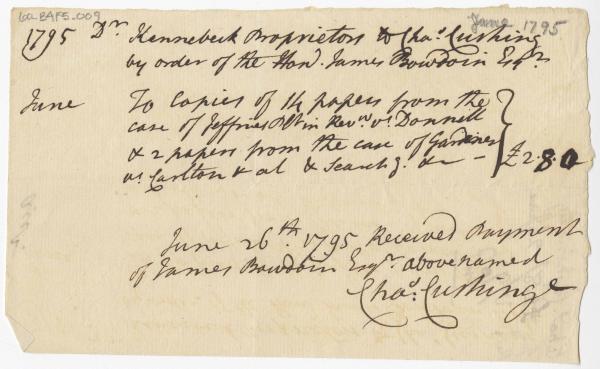 6a.BAF5.009
June 1795
1795 Dr. Kennebeck Proprietors to Chas. Cushing
by order of the Hon. James Bowdoin Esqr.
June To Copies of 14 papers from the
case of Jeffries Plt in Revw. vs. Donnell
& 2 papers from the case of Gardiner
vs. Carlton & al & Searchg. &c — £2.8.0
June 26th. 1795 Received Payment
of James Bowdoin Esqr. abovenamed
Chas. Cushinge